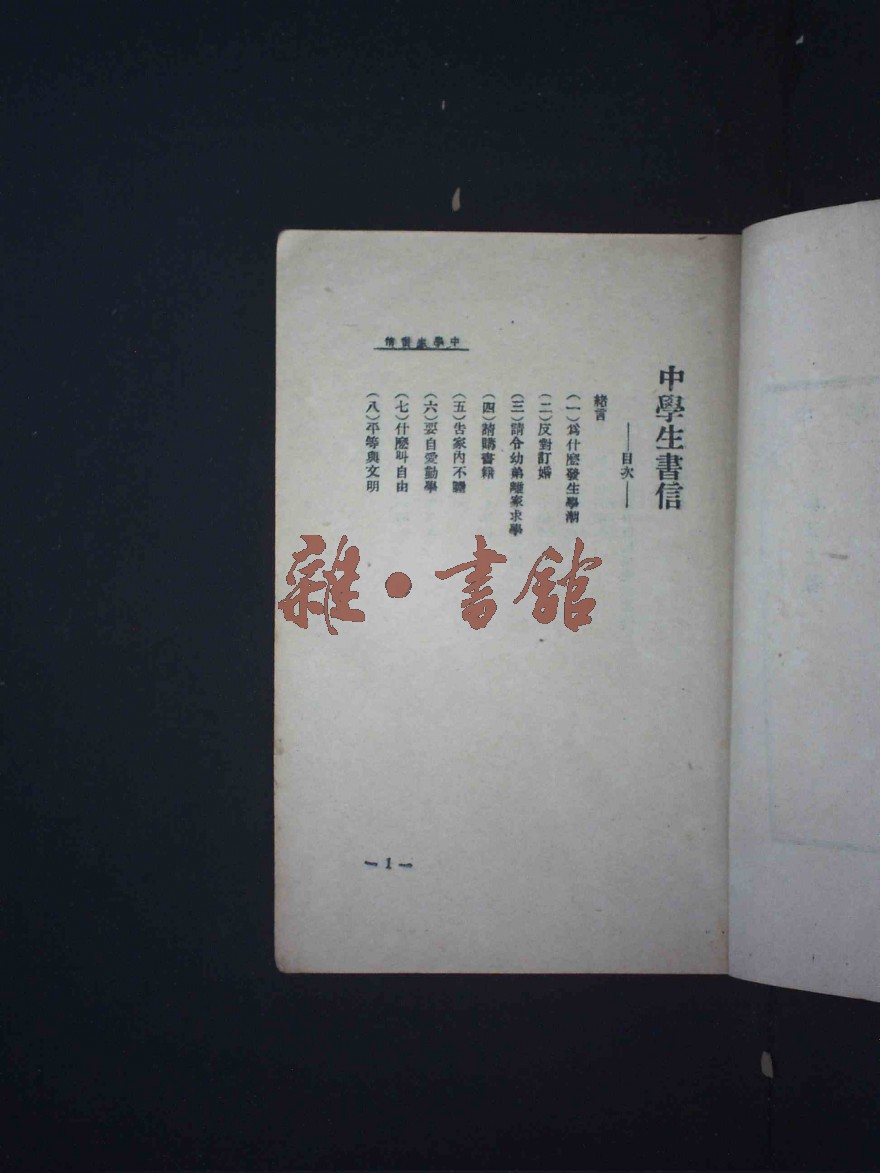 中學生書信
——目次——
緒言
（一）爲什麽發生學潮
（二）反對訂婚
（三）請令幼弟離家求學
（四）請購書籍
（五）告家內不體
（六）要自愛勤學
（七）什麽叫自由
（八）平等與文明
中學生書信
— 1 —
雜·書館